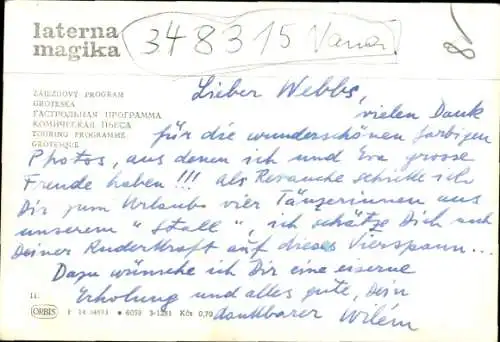 laterna
magika
348315 Vana.
8
ZÁJEZDOVÝ PROGRAM
GROTESKA
ГАСТРОЛЬНАЯ ПРОГРАММА
КОМИЧЕСКАЯ ПЬЕСА
TOURING PROGRAMME
GROTESQUE
Lieber Webbs,
vielen Dank
für die wunderschönen farbigen
Photos, aus denen ich und Eva grosse
Freude haben!!! als Revanche schicke ich
Dir zum Urlaube vier Tänzerinnen aus
unserem "Stall", ich schätze Dich nach
Deiner Ruderkraft auf dieses Vierspann...
Dazu wünsche ich Dir eine eiserne
Erholung und alles gute, Dein
dankbarer Wilém
11.
ORBIS
* 6059 3-1281 Kčs 0,70